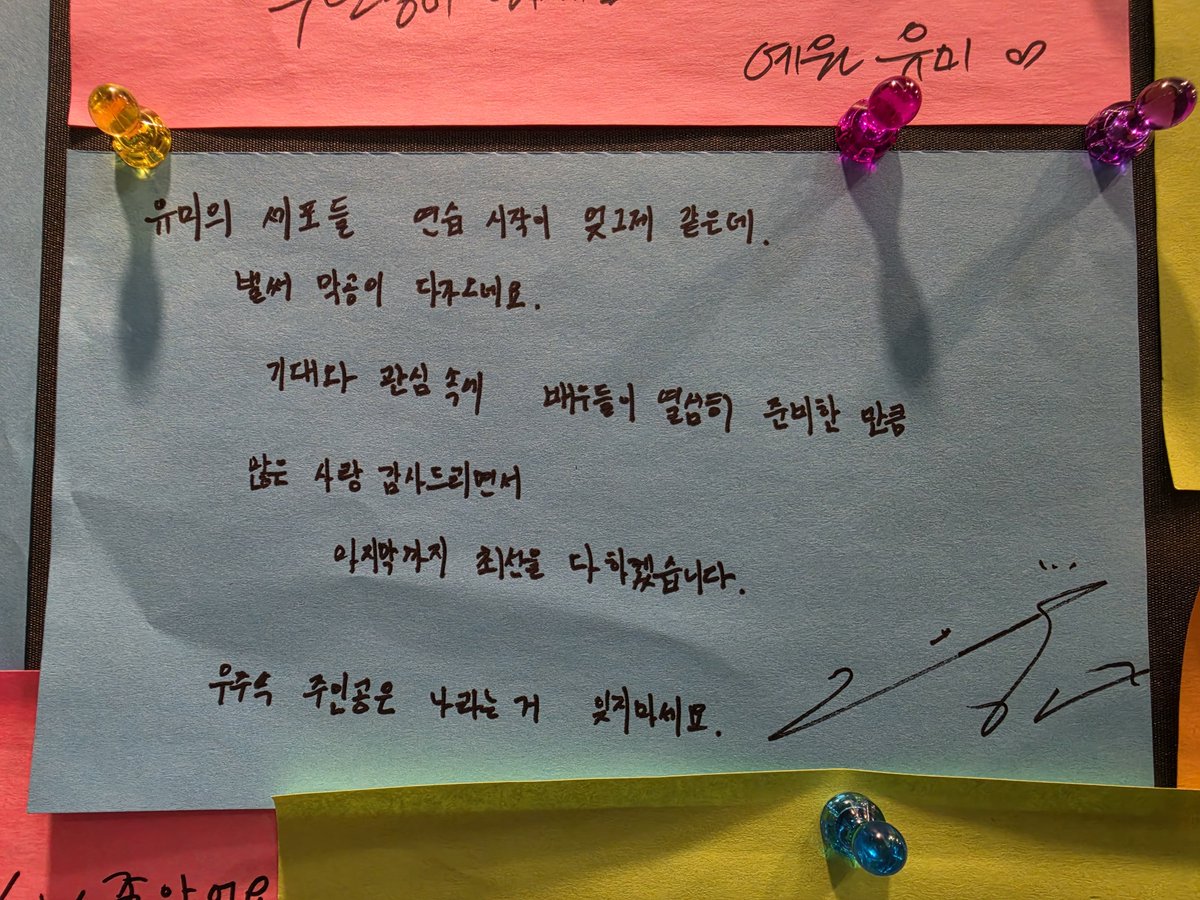 예원 유미
유미의 세포들 연습 시작이 엊그제 같은데.
벌써 막공이 다가오네요.
기대와 관심 속에 배우들이 열심히 준비한 만큼
많은 사랑 감사드리면서
마지막까지 최선을 다하겠습니다.
우주속 주인공은 나라는 거 잊지마세요.
좋아요